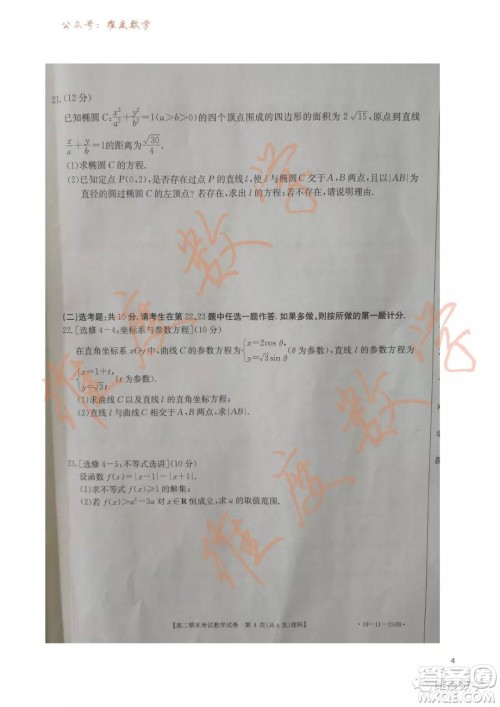 公众号：维度数学
21.(12分)
已知椭圆C:x²/a²+y²/b²=1(a>b>0)的四个顶点围成的四边形的面积为2√15,原点到直线
x/a+y/b=1的距离为√30/4.
(1)求椭圆C的方程.
(2)已知定点P(0,2),是否存在过点P的直线l,使l与椭圆C交于A,B两点,且以|AB|为
直径的圆过椭圆C的左顶点?若存在,求出l的方程;若不存在,请说明理由.
(二)选考题:共10分.请考生在第22,23题中任选一题作答.如果多做,则按所做的第一题计分.
22.[选修4-4:坐标系与参数方程](10分)
在直角坐标系xOy中,曲线C的参数方程为{x=2cos θ, y=√3sin θ (θ为参数),直线l的参数方程为
{x=1+t, y=√3t (t为参数).
(1)求曲线C以及直线l的直角坐标方程;
(2)直线l与曲线C交于A,B两点,求|AB|.
23.[选修4-5:不等式选讲](10分)
设函数f(x)=|x-1|-|x+1|.
(1)求不等式f(x)≥1的解集;
(2)若f(x)>a²-3a对x∈R恒成立,求a的取值范围.
维度数学
【高三期末考试数学试卷 第4页(共4页)理科】
4